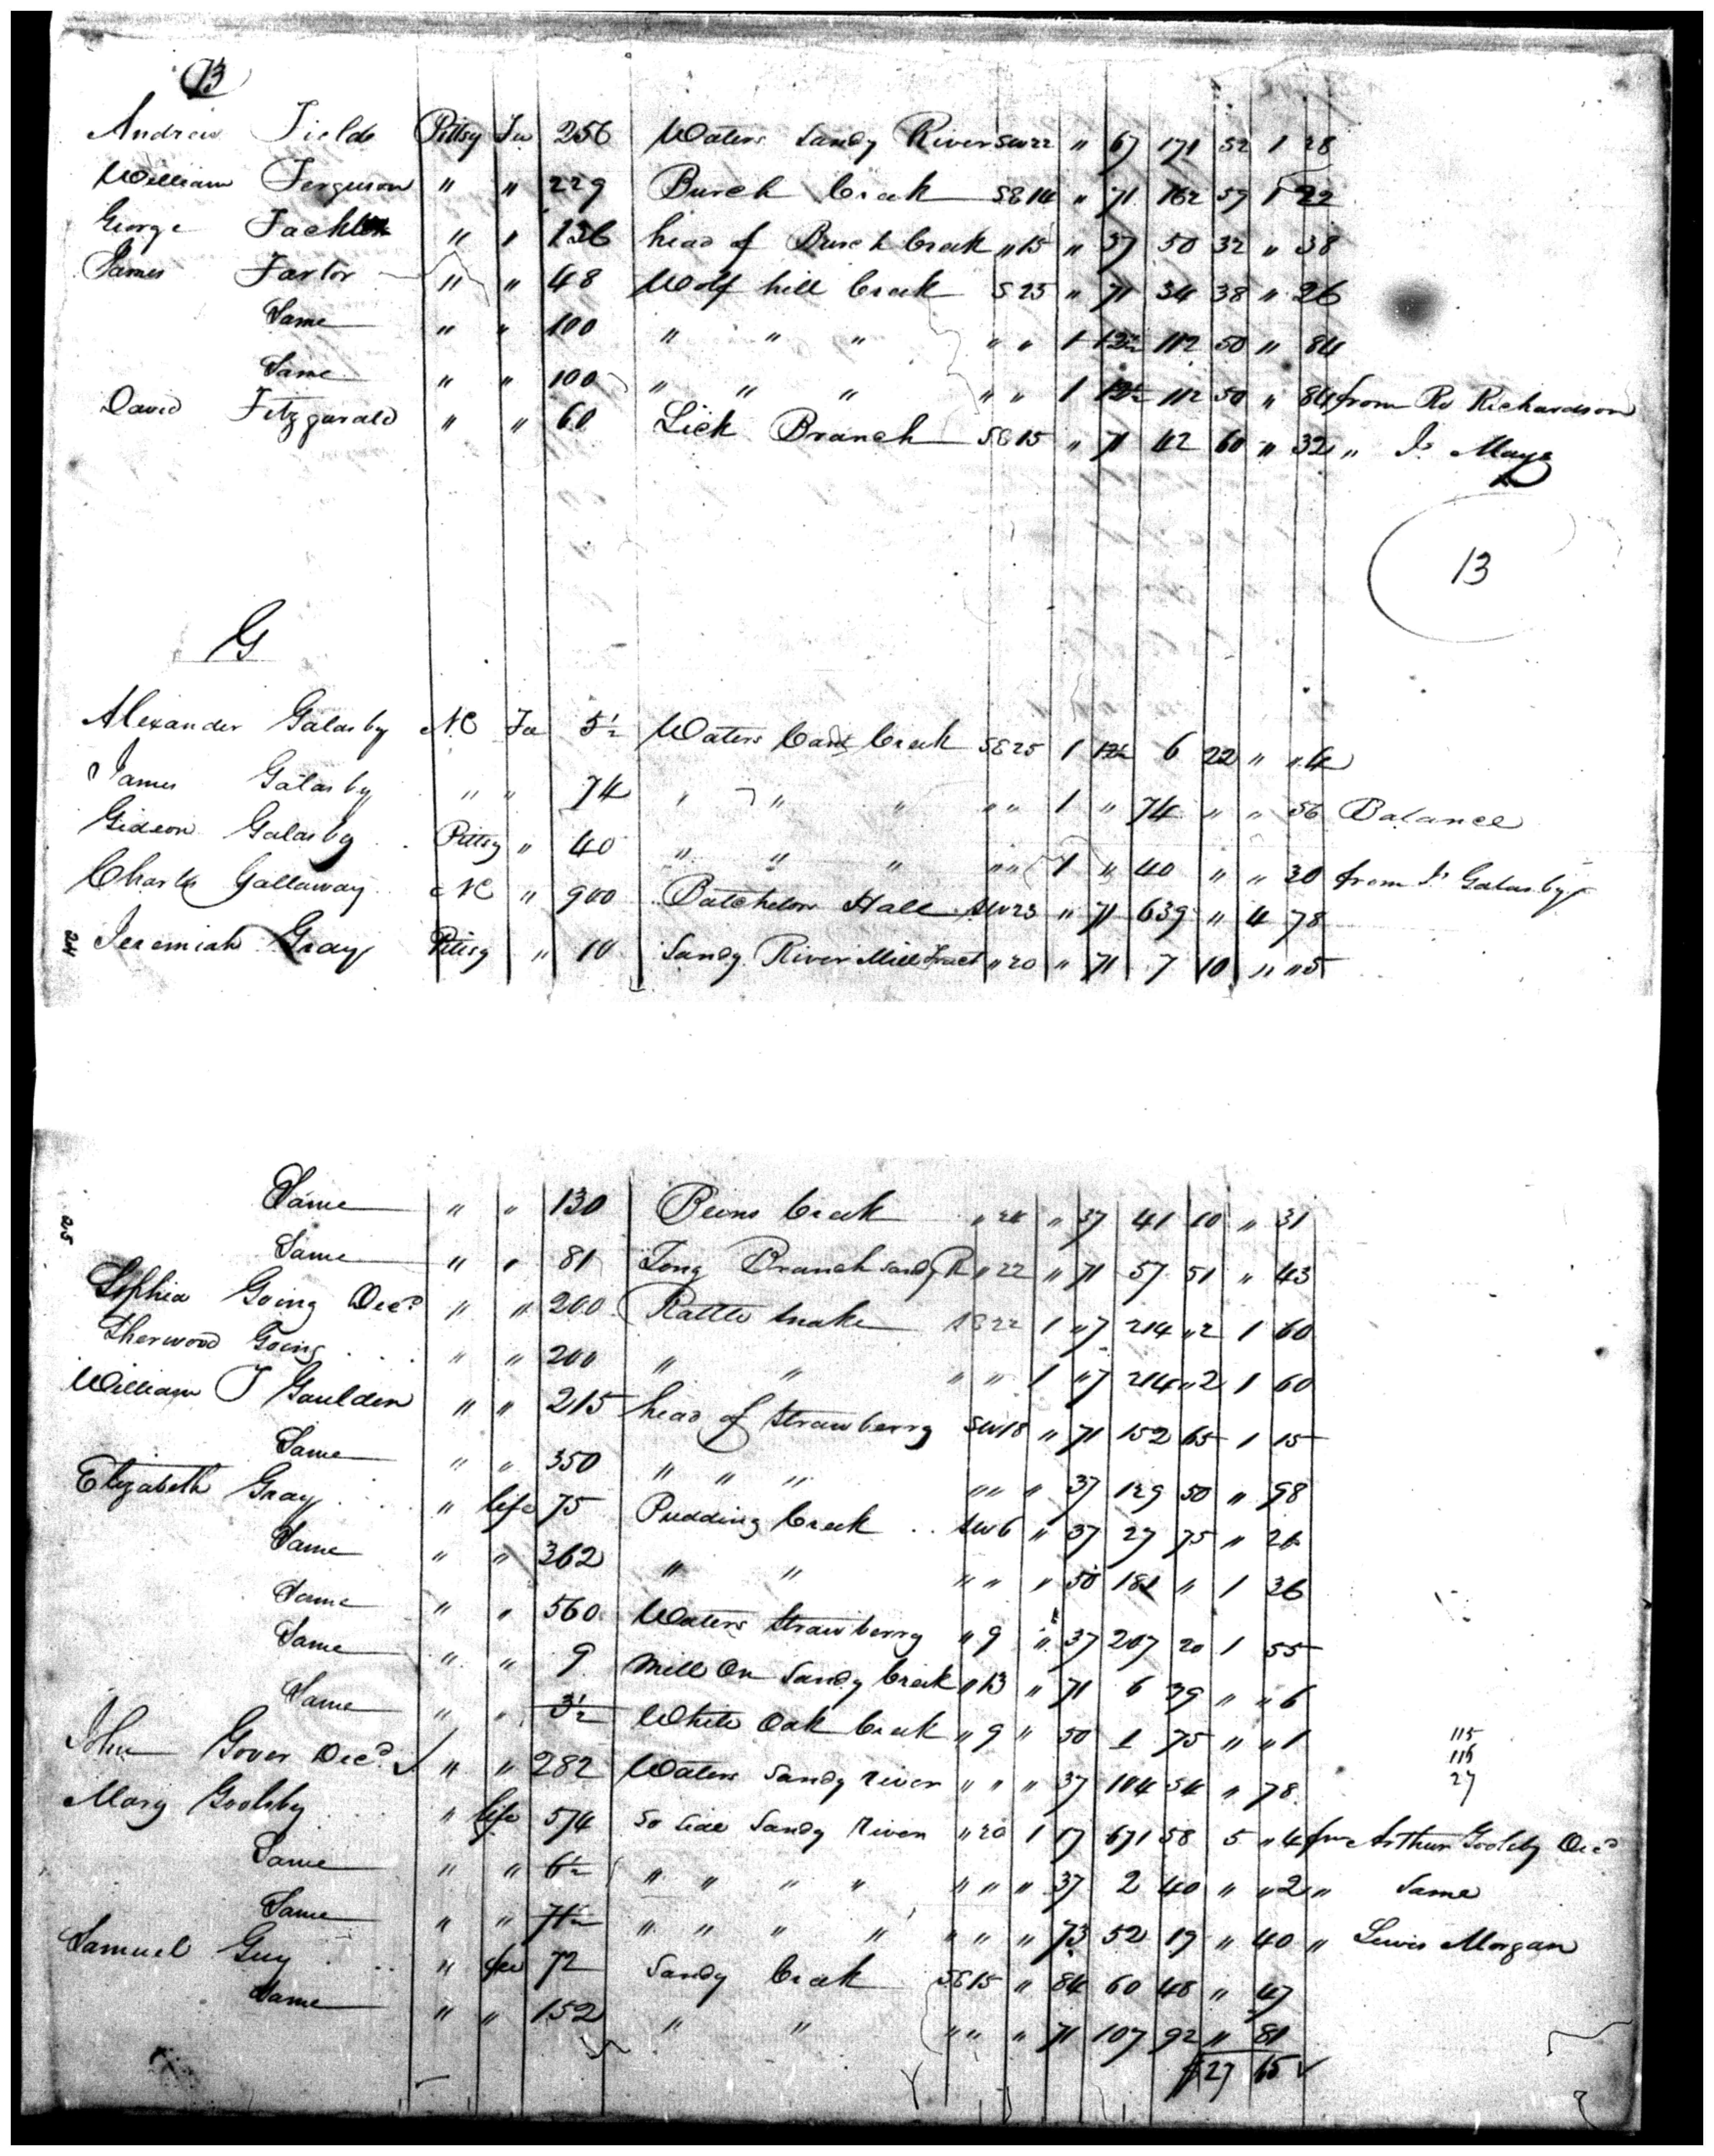 13
Andrew Fields Pittsy Fee 256 Waters Sandy River SW 22 " 67 171 52 1 28
William Ferguson " " 229 Burch Creek SE 14 " 71 162 59 1 22
George Fackler " " 136 head of Burch Creek " 15 " 37 50 32 " 38
James Farlor " " 48 Wolf hill Creek S 25 " 71 34 38 " 26
Same " " 100 " " " " " 1 12½ 112 50 " 84
Same " " 100 " " " " " 1 12½ 112 50 " 84 from Ro Richardson
David Fitzgarald " " 60 Lick Branch SE 15 " 71 42 60 " 32 " Js Mays
13
G
Alexander Galasby NC Fee 5½ Waters Cane Creek SE 25 1 12½ 6 22 " " 4
James Galasby " " 74 " " " " " 1 " 74 " " 56 Balance
Gideon Galasby Pittsy " 40 " " " " " 1 " 40 " " 30 from Js Galasby
Charles Gallaway NC " 900 Batchelors Hall SW 23 " 71 639 " 4 78
24 Jeremiah Gray Pittsy " 10 Sandy River Mill Tract " 20 " 71 7 10 " " 5
25
Same " " 130 Beans Creek " 24 " 37 41 10 " 31
Same " " 81 Long Branch Sandy R " 22 " 71 57 51 " 43
Sophia Going Decd " " 200 Rattle snake SE 22 1 "7 214 "2 1 60
Sherwood Going " " 200 " " " " 1 "7 214 "2 1 60
William T Gaulden " " 215 head of Strawberry SW 18 " 71 152 65 1 15
Same " " 350 " " " " " " 37 129 50 " 98
Elizabeth Gray " life 75 Pudding Creek SW 6 " 37 27 75 " 21
Same " " 362 " " " " " 50 181 " 1 36
Same " " 560 Waters Strawberry " 9 " 37 207 20 1 55
Same " " 9 Mill On Sandy Creek " 13 " 71 6 39 " " 6
Same " " 3½ White Oak Creek " 9 " 50 1 75 " " 1 115
115
John Gover Decd " " 282 Waters Sandy River " " " 37 104 34 " 78 27
Mary Goolsby " life 574 So Side Sandy River " 20 1 17 671 58 5 " 4 from Arthur Goolsby Decd
Same " " 6½ " " " " " " " 37 2 40 " " 2 " Same
Same " " 71½ " " " " " " " 73 52 19 " 40 " Lewis Morgan
Samuel Guy " fee 72 Sandy Creek SE 15 " 84 60 48 " 47
Same " " 152 " " " " " 71 107 92 " 81
$27 65